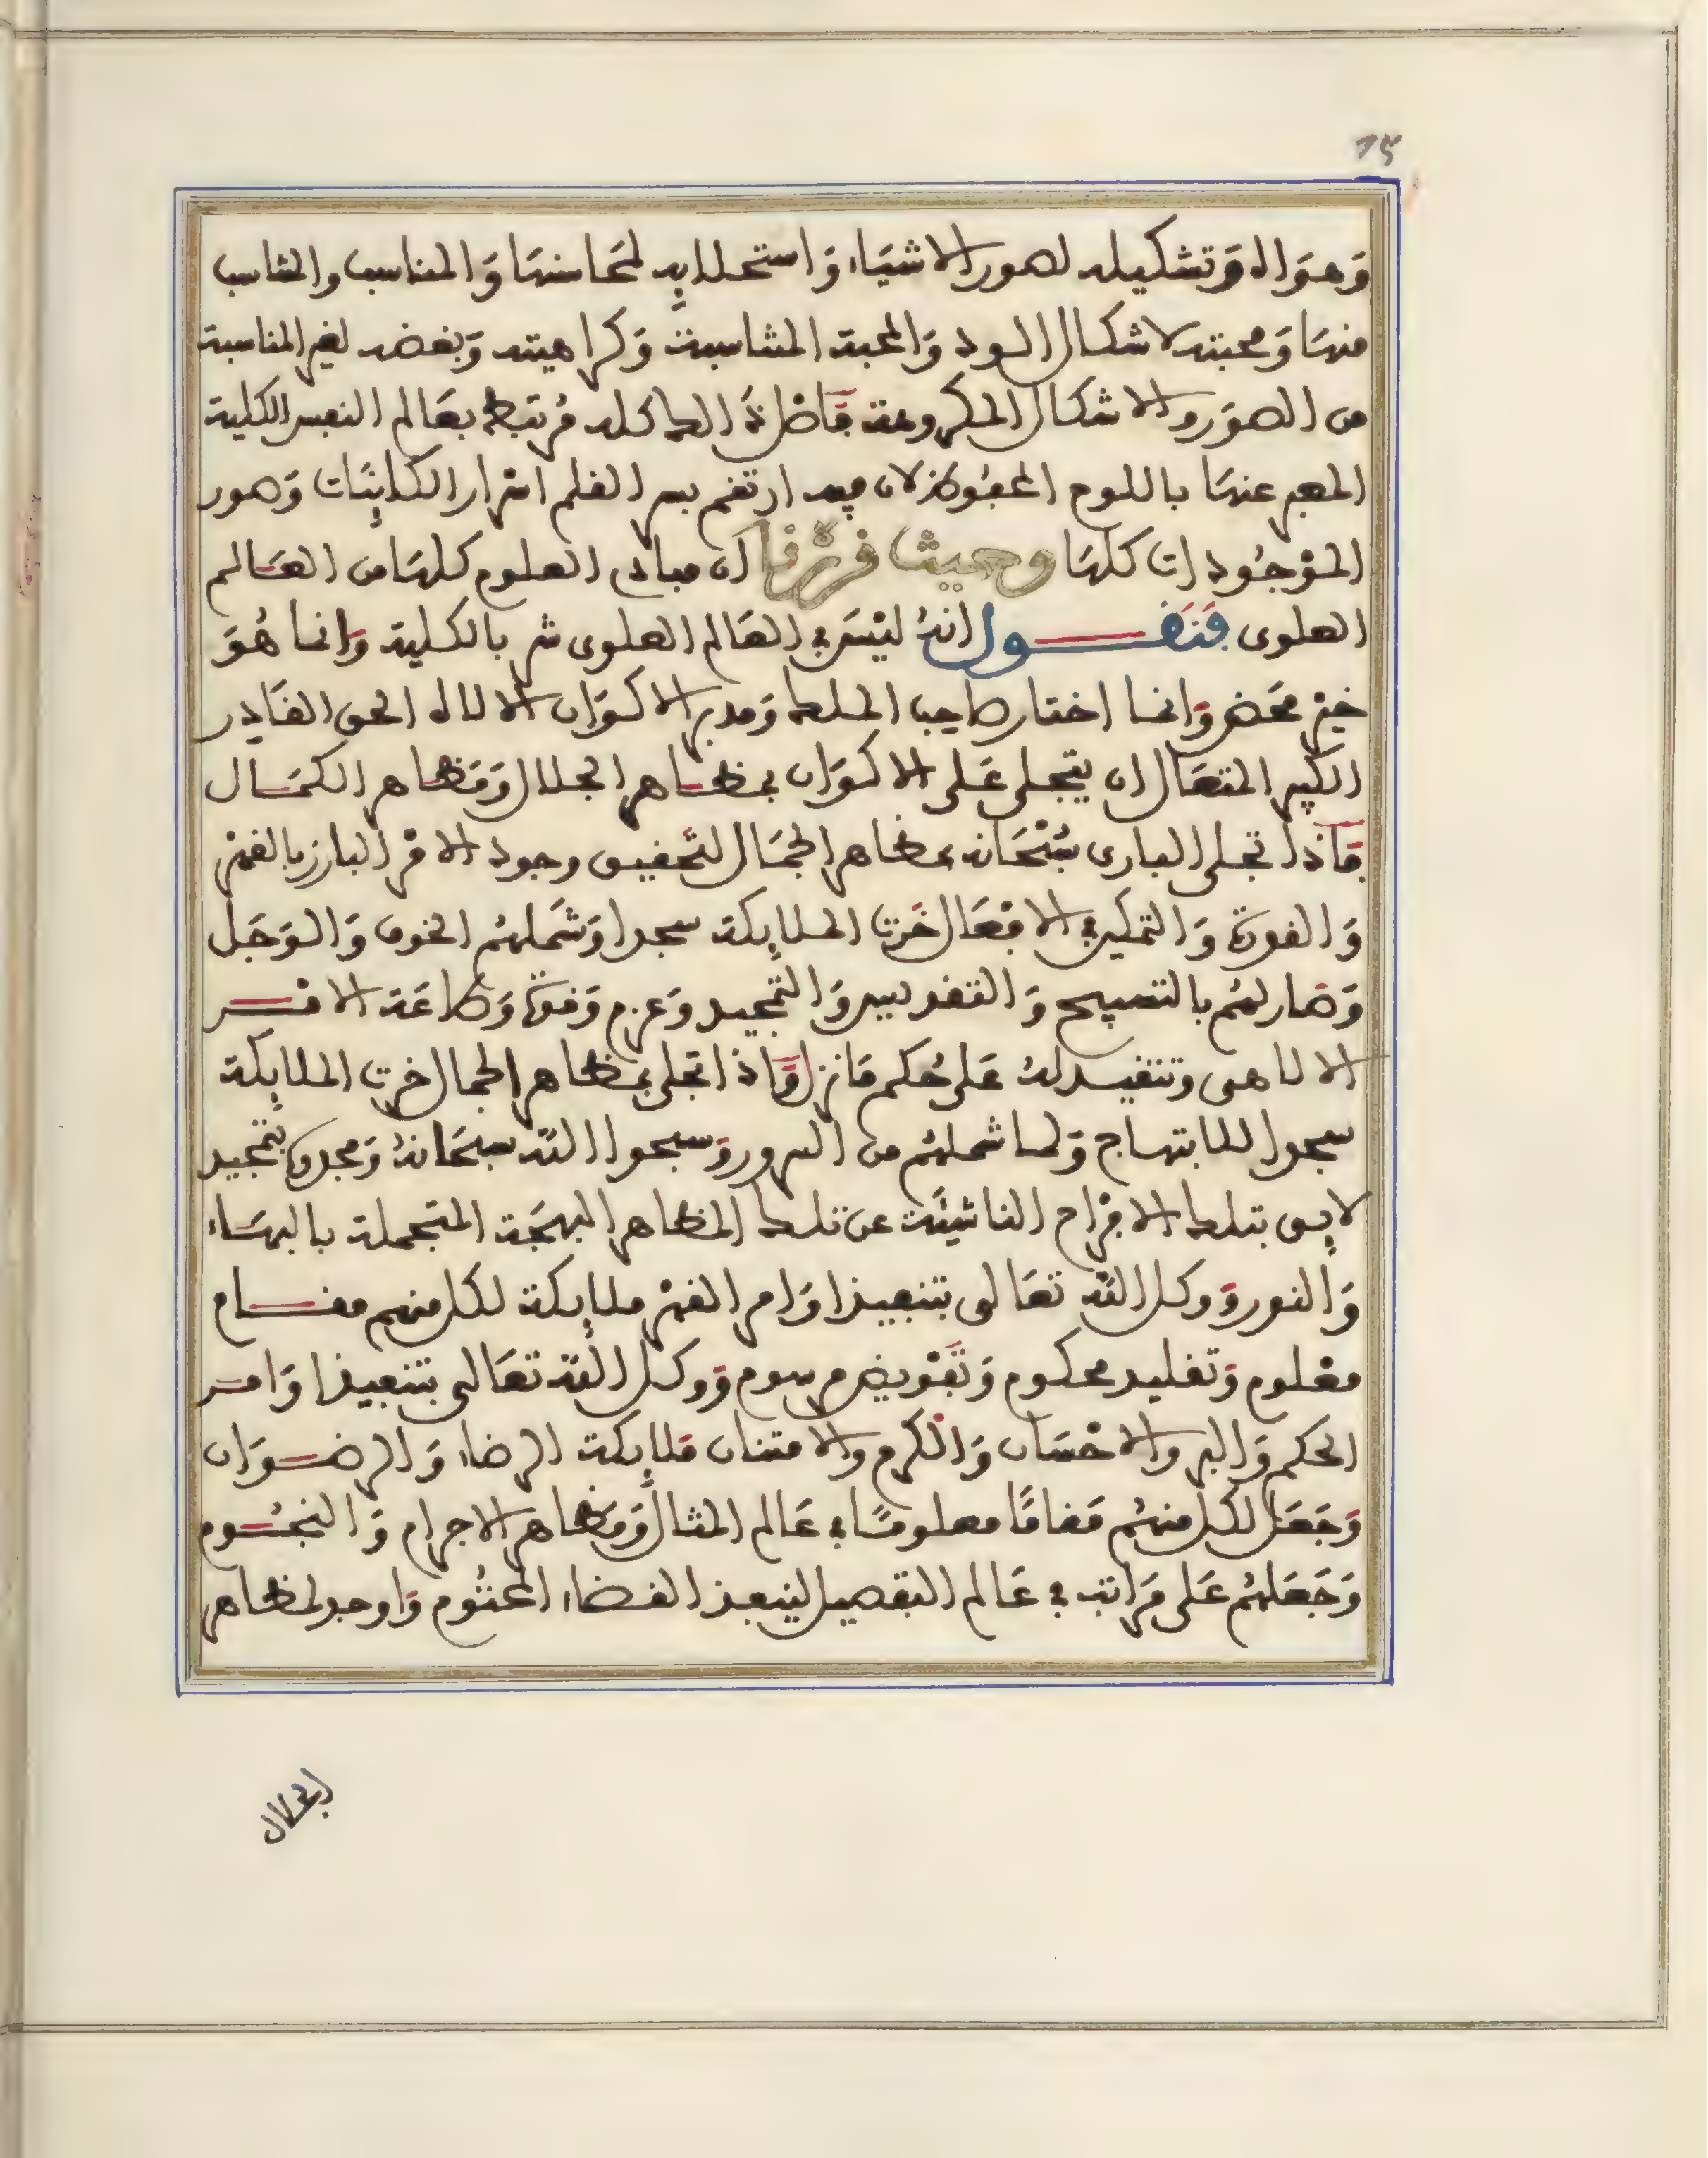 15
وَهوَاله وَتشكيله لصور الاشيَاء وَاستحلايه لمحَاسنهَا وَالمناسب والمشاسب
منهَا وَمحبته لاشكال الود وَالمحبة المشاسبة وَكراهيته وَبغضه لغير المناسبة
من الصوَر والاشكال المكروهة فَاصْل ذَٰلك كله مُرتبط بعَالم النفس الكلية
المعبر عنهَا باللوح المحفوظ لان فيه ارتقم بسر القلم اسْرار الكاينَات وَصور
الموْجُودات كلهَا وحيث قرّرْنا ان مبادى العلوم كلهَا من العَالم
العلوى فَنَقـــول انهُ ليْسَ في العَالم العلوى شر بالكلية وَانما هُوَ
خيْر محَض وَانما اختار صاحب الملك وَمدبر الاكوَان الالاه الحق القَادِر
الكبير المتعَال ان يتجلى عَلى الاكوَان بمظاهر الجلال وَمَظاهر الكمَال
فَاذا تجلى البارى سُبْحَانه بمظاهر الجمَال لتَحقيق وجود الامْر البارز بالقهْر
وَالقوة وَالتمكين في الافعَال خَرت الملايكة سجدا وَشَملهُم الخوف وَالوَجَل
وَصَار لهُم بالتسبيح وَالتقديس وَالتمْجيد وَعزم وَقوة وَطاعَة الامْـــر
الالاهى وتنفيذ لهُ عَلى حُكم مَا نزل وَاذا تجلى بمظاهر الجمال خرت الملايكة
سجودا للابتهاج وَلما شملهُم من السرور وَسبحوا اللّه سبحَانهُ وَمجدوه بتمْجيد
لايق بتلك الافرَاح الناشيَة عن تلك المظاهر البهجَة المتجملة بالبهَاء
وَالنور وَوكل اللّه تعَالى بتنفيذ اوَامر القهْر ملايكة لكل منهم مقـــام
معْلوم وَتقليد محكوم وَتَفْويض مرسوم وَوكل اللّه تعَالى بتنفيذ اوَامـر
الحكم وَالبر والاحْسَان وَالكرم والامتنان مَلايكة الرضاء وَالرضـــوَان
وَجَعَل لكل منهُم مَقامًا معلومًا في عَالم المثال وَمَظاهر الاجرام وَالنجُـوم
وَجَعَلهُم عَلى مَرَاتب في عَالم التفصيل لينفذ القضاء المحتُوم وَاوجد لمظاهر
الجلال